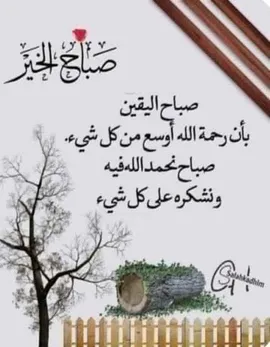 صباح الخير
صباح اليقين
بأن رحمة الله أوسع من كل شيء.
صباح نحمد الله فيه
ونشكره على كل شيء
Salahkadhim